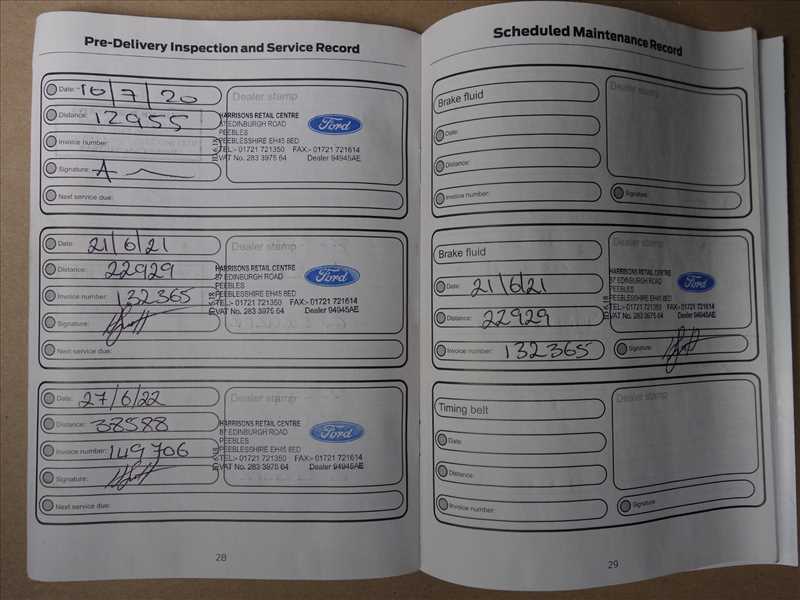 Pre-Delivery Inspection and Service Record
Date: 10/7/20
Distance: 12955
Invoice number:
Signature:
Next service due:
Dealer stamp
HARRISONS RETAIL CENTRE
87 EDINBURGH ROAD
PEEBLES
PEEBLESSHIRE EH45 8ED
TEL:- 01721 721350 FAX:- 01721 721614
VAT No. 283 3975 64 Dealer 94945AE
Ford
Date: 21/6/21
Distance: 22929
Invoice number: 132365
Signature:
Next service due:
Dealer stamp
HARRISONS RETAIL CENTRE
87 EDINBURGH ROAD
PEEBLES
PEEBLESSHIRE EH45 8ED
TEL:- 01721 721350 FAX:- 01721 721614
VAT No. 283 3975 64 Dealer 94945AE
Ford
Date: 27/6/22
Distance: 38588
Invoice number: 149706
Signature:
Next service due:
Dealer stamp
HARRISONS RETAIL CENTRE
87 EDINBURGH ROAD
PEEBLES
PEEBLESSHIRE EH45 8ED
TEL:- 01721 721350 FAX:- 01721 721614
VAT No. 283 3975 64 Dealer 94945AE
Ford
28
Scheduled Maintenance Record
Brake fluid
Date:
Distance:
Invoice number:
Dealer stamp
Signature:
Brake fluid
Date: 21/6/21
Distance: 22929
Invoice number: 132365
Dealer stamp
HARRISONS RETAIL CENTRE
87 EDINBURGH ROAD
PEEBLES
PEEBLESSHIRE EH45 8ED
TEL:- 01721 721350 FAX:- 01721 721614
VAT No. 283 3975 64 Dealer 94945AE
Ford
Signature:
Timing belt
Date:
Distance:
Invoice number:
Dealer stamp
Signature:
29